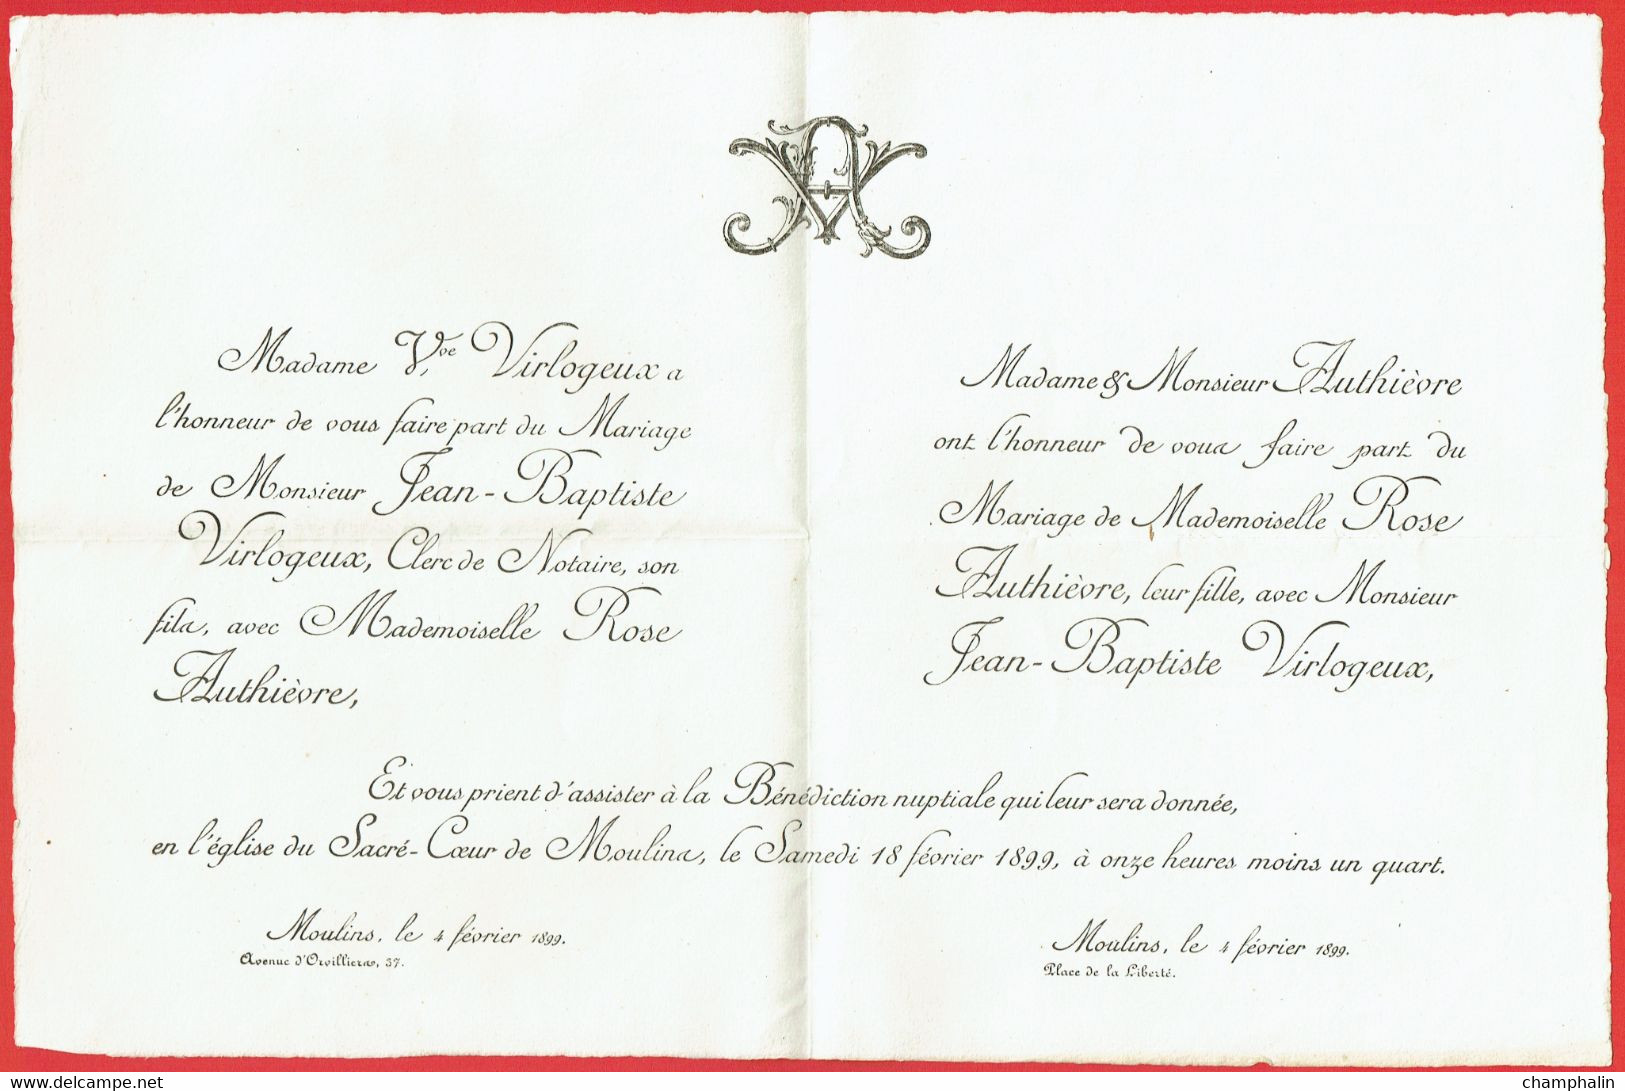 AV
Madame Vve Virlogeux a
l'honneur de vous faire part du Mariage
de Monsieur Jean-Baptiste
Virlogeux, Clerc de Notaire, son
fils, avec Mademoiselle Rose
Authièvre,
Madame & Monsieur Authièvre
ont l'honneur de vous faire part du
Mariage de Mademoiselle Rose
Authièvre, leur fille, avec Monsieur
Jean-Baptiste Virlogeux,
Et vous prient d'assister à la Bénédiction nuptiale qui leur sera donnée,
en l'église du Sacré-Cœur de Moulins, le Samedi 18 février 1899, à onze heures moins un quart.
Moulins, le 4 février 1899.
Avenue d'Orvilliers, 37.
Moulins, le 4 février 1899.
Place de la Liberté.
delcampe.net
champhalin